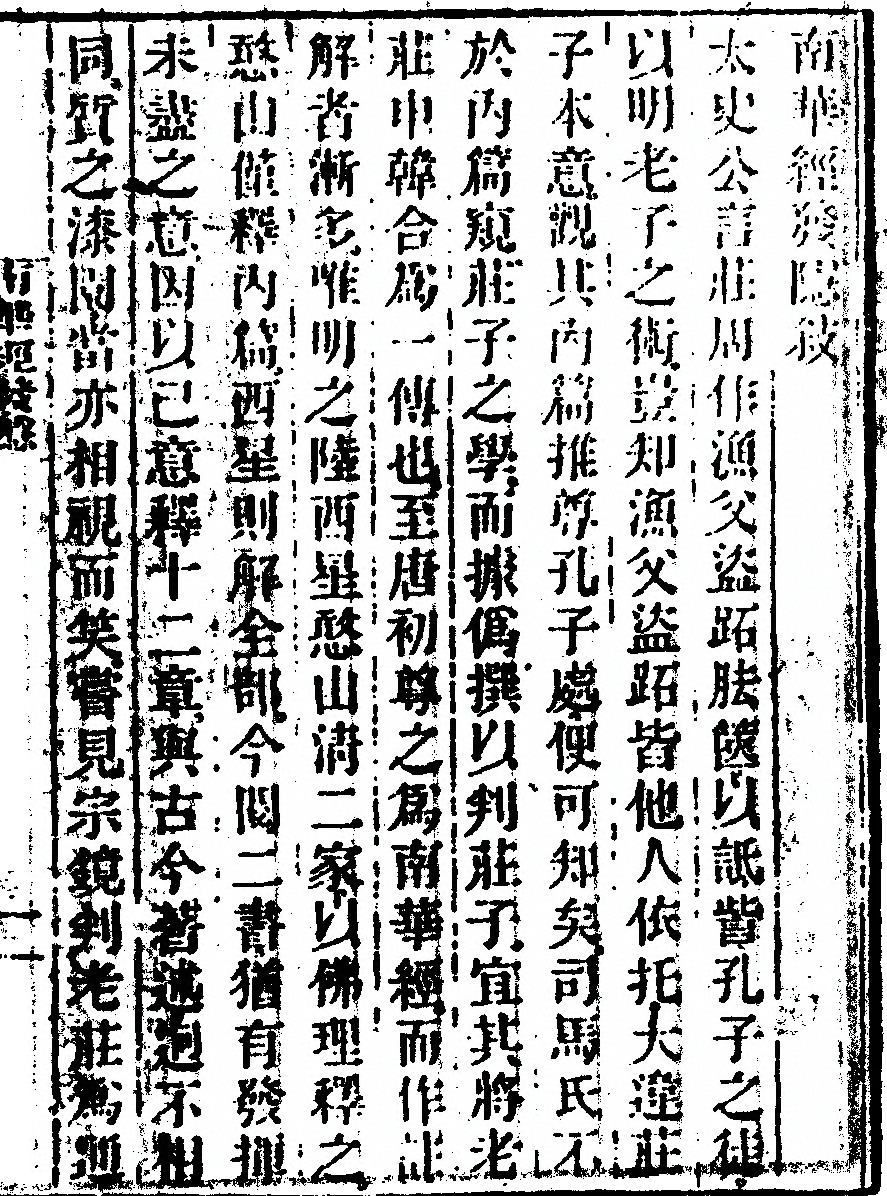 南華經發隱敘
太史公言莊周作漁父盜跖胠篋以詆訾孔子之徒
以明老子之術豈知漁父盜跖皆他人依托大違莊
子本意觀其內篇推尊孔子處便可知矣司馬氏不
於內篇窺莊子之學而據偽撰以判莊子宜其將老
莊申韓合為一傳也至唐初尊之為南華經而作註
解者漸多唯明之陸西星憨山清二家以佛理釋之
憨山僅釋內篇西星則解全部今閱二書猶有發揮
未盡之意因以己意釋十二章與古今著述迥不相
同質之漆園當亦相視而笑嘗見宗鏡判老莊為通
南華經發隱